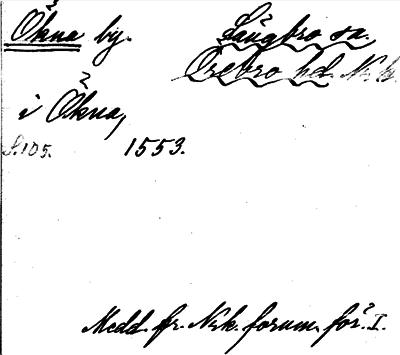 Ökna by. Långbro sn.
Örebro hd. Nrk.
i Ökna,
S. 105. 1553.
Medd. fr. Nrk. fornm. för. I.